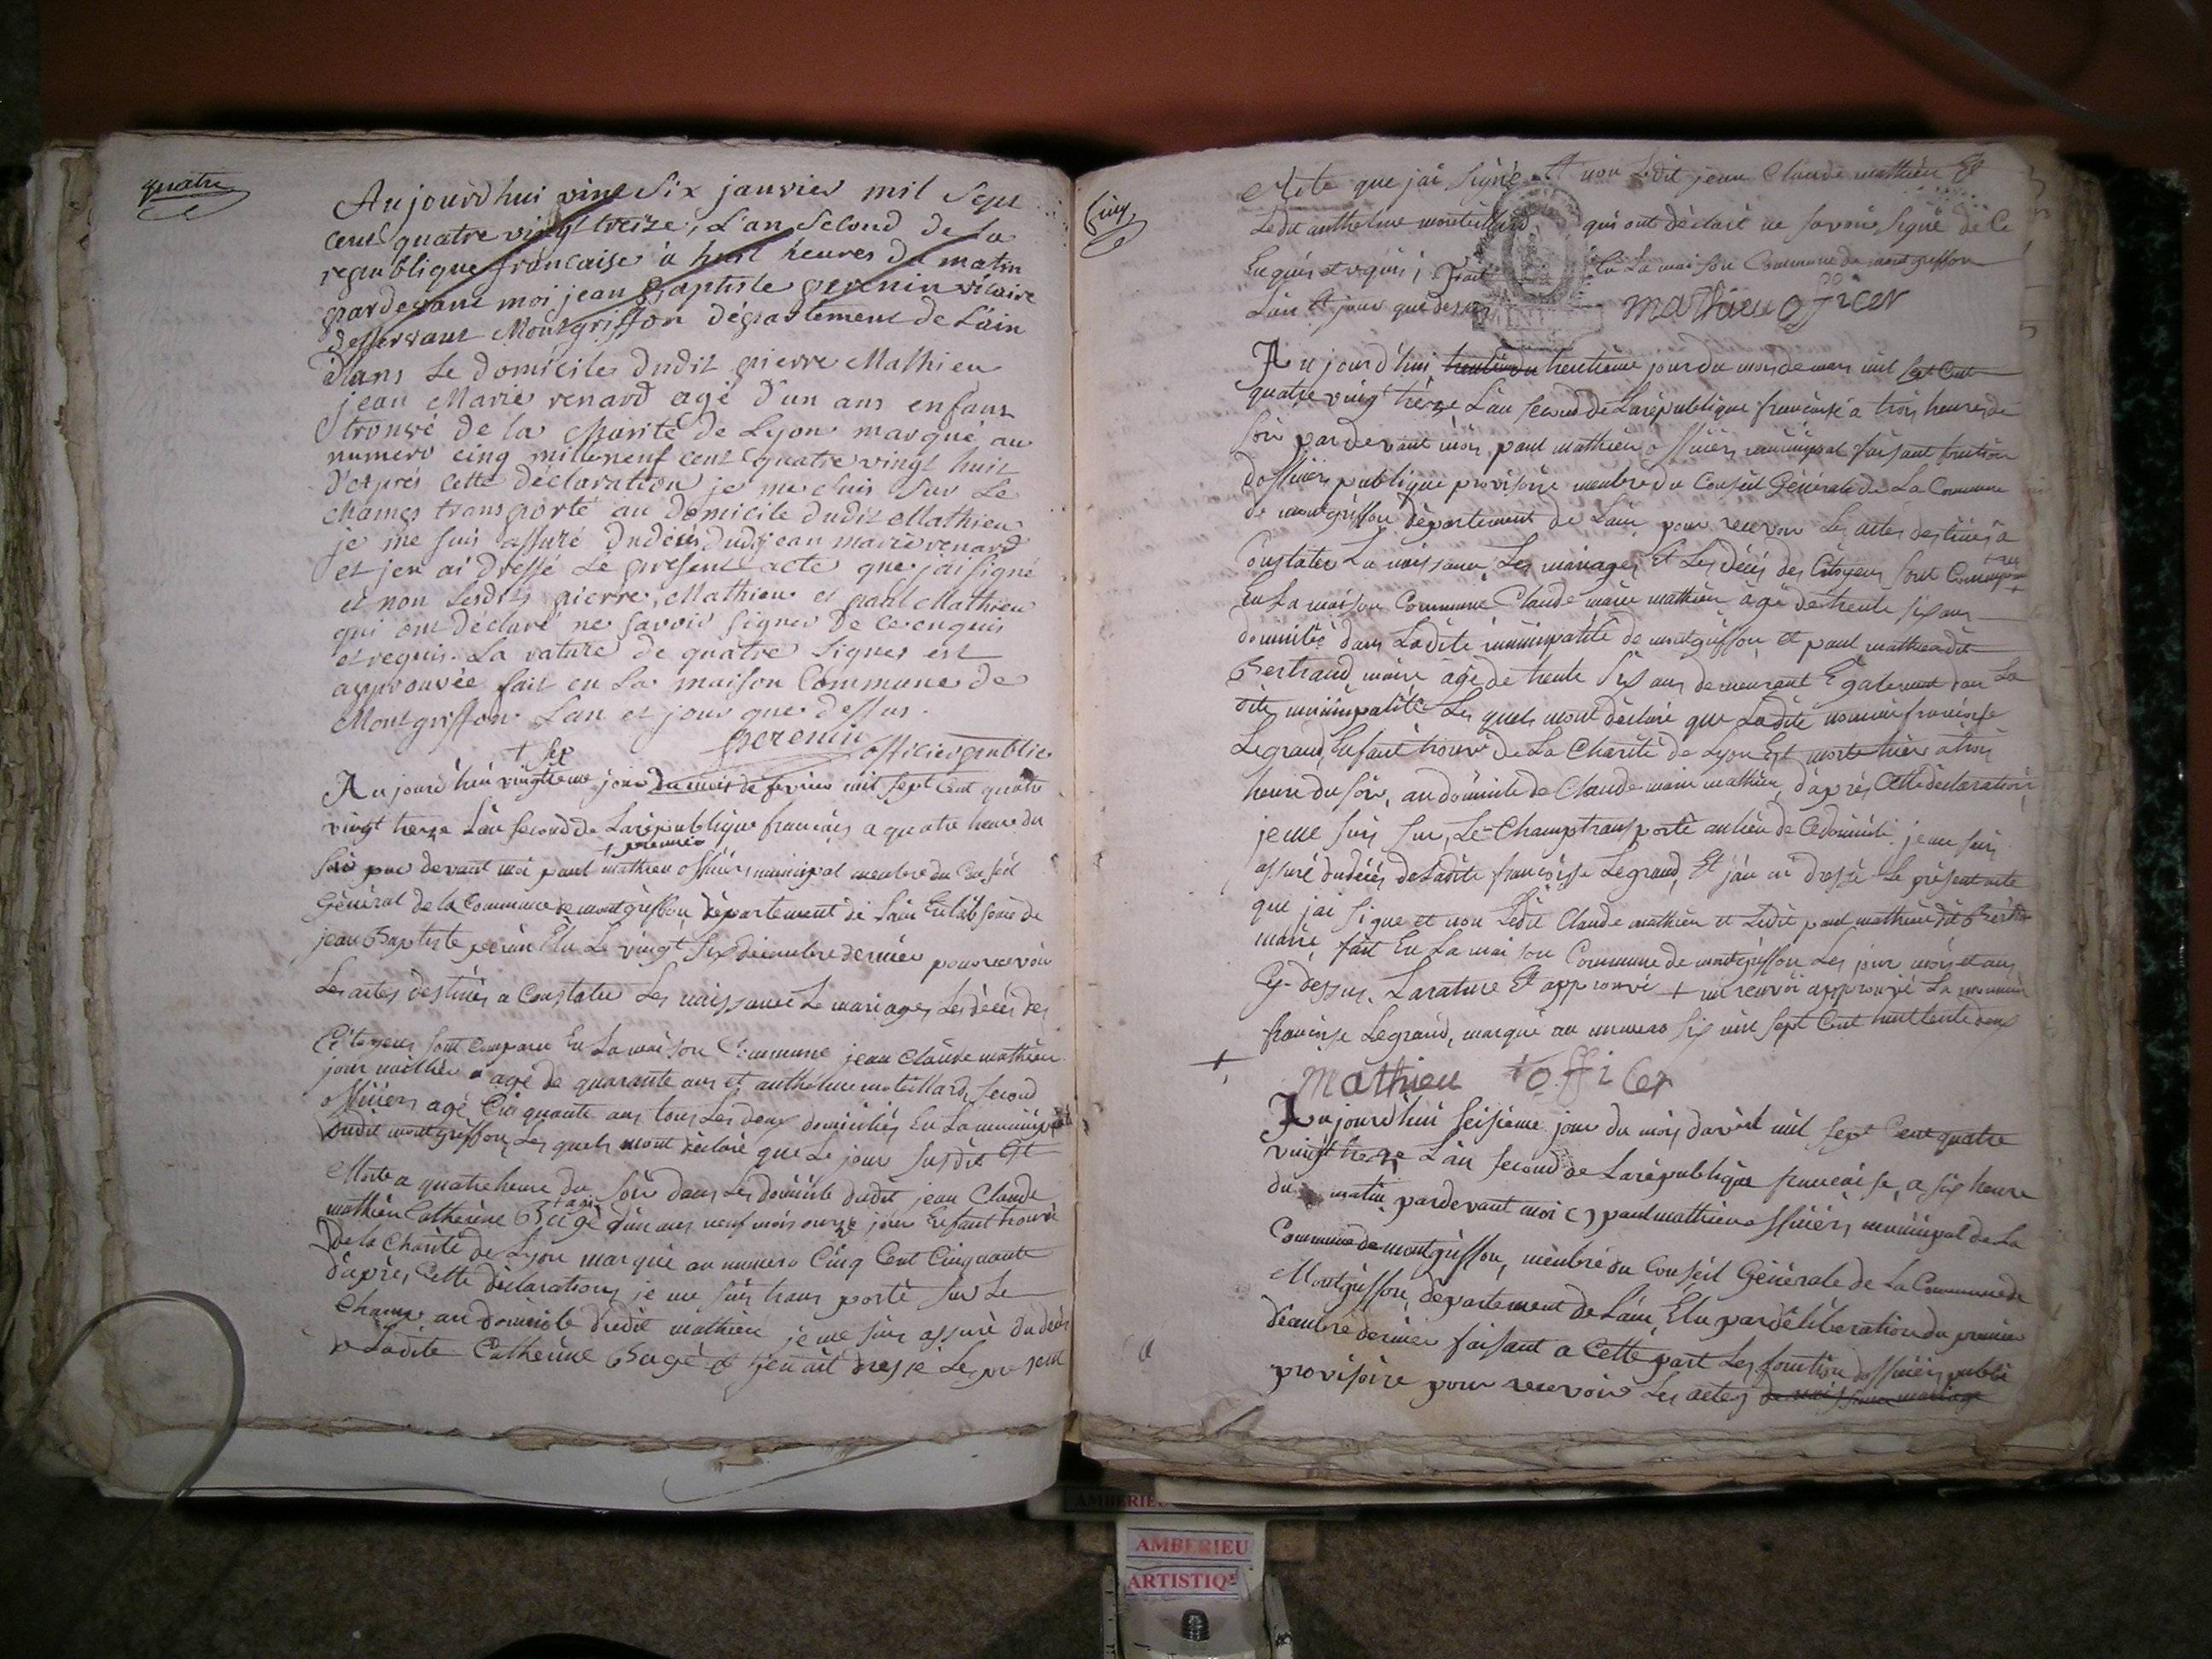 quatre
Aujourdhui vint Six janvier mil Sept
cent quatre vingt treize, L'an Second de la
republique francaise à huit heures du matin
pardevant moi jean Baptiste perenin vicaire
desservant Montgriffon département de L'ain
dans Le domicile dudit pierre Mathieu
jean Marie renard agé d'un ans enfant
trouvé de la charité de Lyon marqué au
numero cinq mille neuf cent quatre vingt huit
d'après cette déclaration je me suis Sur Le
champs transporté au domicile dudit Mathieu
je me suis assuré du décés dudit jean marie renard
et j'en ai dressé Le present acte que j'ai signé
et non Lesdits pierre Mathieu et paul Mathieu
qui ont déclaré ne savoir signer de ce enquis
et requis. La rature de quatre Lignes est
approuvée fait en La maison Commune de
Montgriffon L'an et jour que dessus.
perenin officier public
+ six
Aujourd'hui vingtieme jour du mois de fevrier mil sept cent quatre
vingt treize L'an second de Larépublique français a quatre heure du
+ premier
soir par devant moi paul mathieu officiers municipal membre du Conseil
Général de la Commune de montgriffon département de Lain En labsence de
jean Baptiste perenin Elu Le vingt Six décembre dernier pour recevoir
Les actes destinés a Constater Les naissance Le mariages Les décès des
Citoyens sont Comparu En La maison Commune jean claude mathieu
agé de quarante ans et anthelme monteillard, second
officiers agé Cinquante ans tous Les deux domiciliés En La municipalité
dudit montgriffon Les quels mont déclaré que Le jour susdit Est
Morte a quatre heure du soir dans Le domicile dudit jean Claude
+ agé
mathieu Catherine Bagé d'un ans neuf mois onze jour Enfant trouvé
de la Charité de Lyon marqué au numero Cinq Cent Cinquante
d'après Cette déclaration je me suis trans porté sur Le
Champ au domicile dudit mathieu je me suis assuré du décès
de Ladite Catherine Bagé et j'en ait dressé Le present
Cinq
Acte que jai signé Et non Ledit jean Claude mathieu Et
Ledit anthelme monteillard qui ont déclaré ne savoir signé de Ce
Enquis et requis; Fait En La maison Commune de montgriffon
Lan Et jour que dessus
mathieu oficer
Aujourd'hui trentieme jour du mois de mars mil sept Cent
quatre ving treze Lan second de Larépublique française a trois heures de
soir pardevant moi paul mathieu officiers municipal faisant fonction
dofficiers publique provisoire membre du Conseil Générale de La Commune
de montgriffon département de Lain pour recevoir Les actes destinés a
Constater La naissance Les mariages et Les décès des Citoyens sont Comparu
En La maison Commune Claude marie mathieu agé de trente six ans
domicilié dans Ladite municipalité de montgriffon et paul mathieu dit
Bertrand maire agé de trente Six ans demeurant Egalement dans La
dite municipalité Les quels mont déclaré que Ladite nommée françoise
Legrand Enfant trouvé de La Charité de Lyon Est morte hier a trois
heure du soir, au domicile de Claude marie mathieu, d'après Cette déclaration
je me suis sur Le Champ transporté au lieu de Ce domicile je me suis
assuré du décès de Ladite françoise Legrand, Et jan ai dressé Le présent acte
que jai signe et non Ledit Claude mathieu et Ledit paul mathieu dit Bertran
maire, fait En La maison Commune de montgriffon Les jour mois et an
Cy-dessus. La rature Est approuvé + un renvoi approuvé La nommée
françoise Legrand, marqué au numero Six mil Sept Cent huittente deux
+ mathieu officer
Aujourdhui Seisieme jour du mois d'avril mil sept Cent quatre
vingt treze L'an second de Larépublique francaise, a six heure
du matin pardevant moi paul mathieu officiers municipal de La
Commune de montgriffon, membre du Conseil Générale de La Commune de
Montgriffon, département de Lain, Elu par délibération du premier
décembre dernier faisant a Cette part Les fonction d'officiers public
provisoire pour recevoir Les actes de naissance mariage
AMBERIEU
AMBERIEU
ARTISTIQ